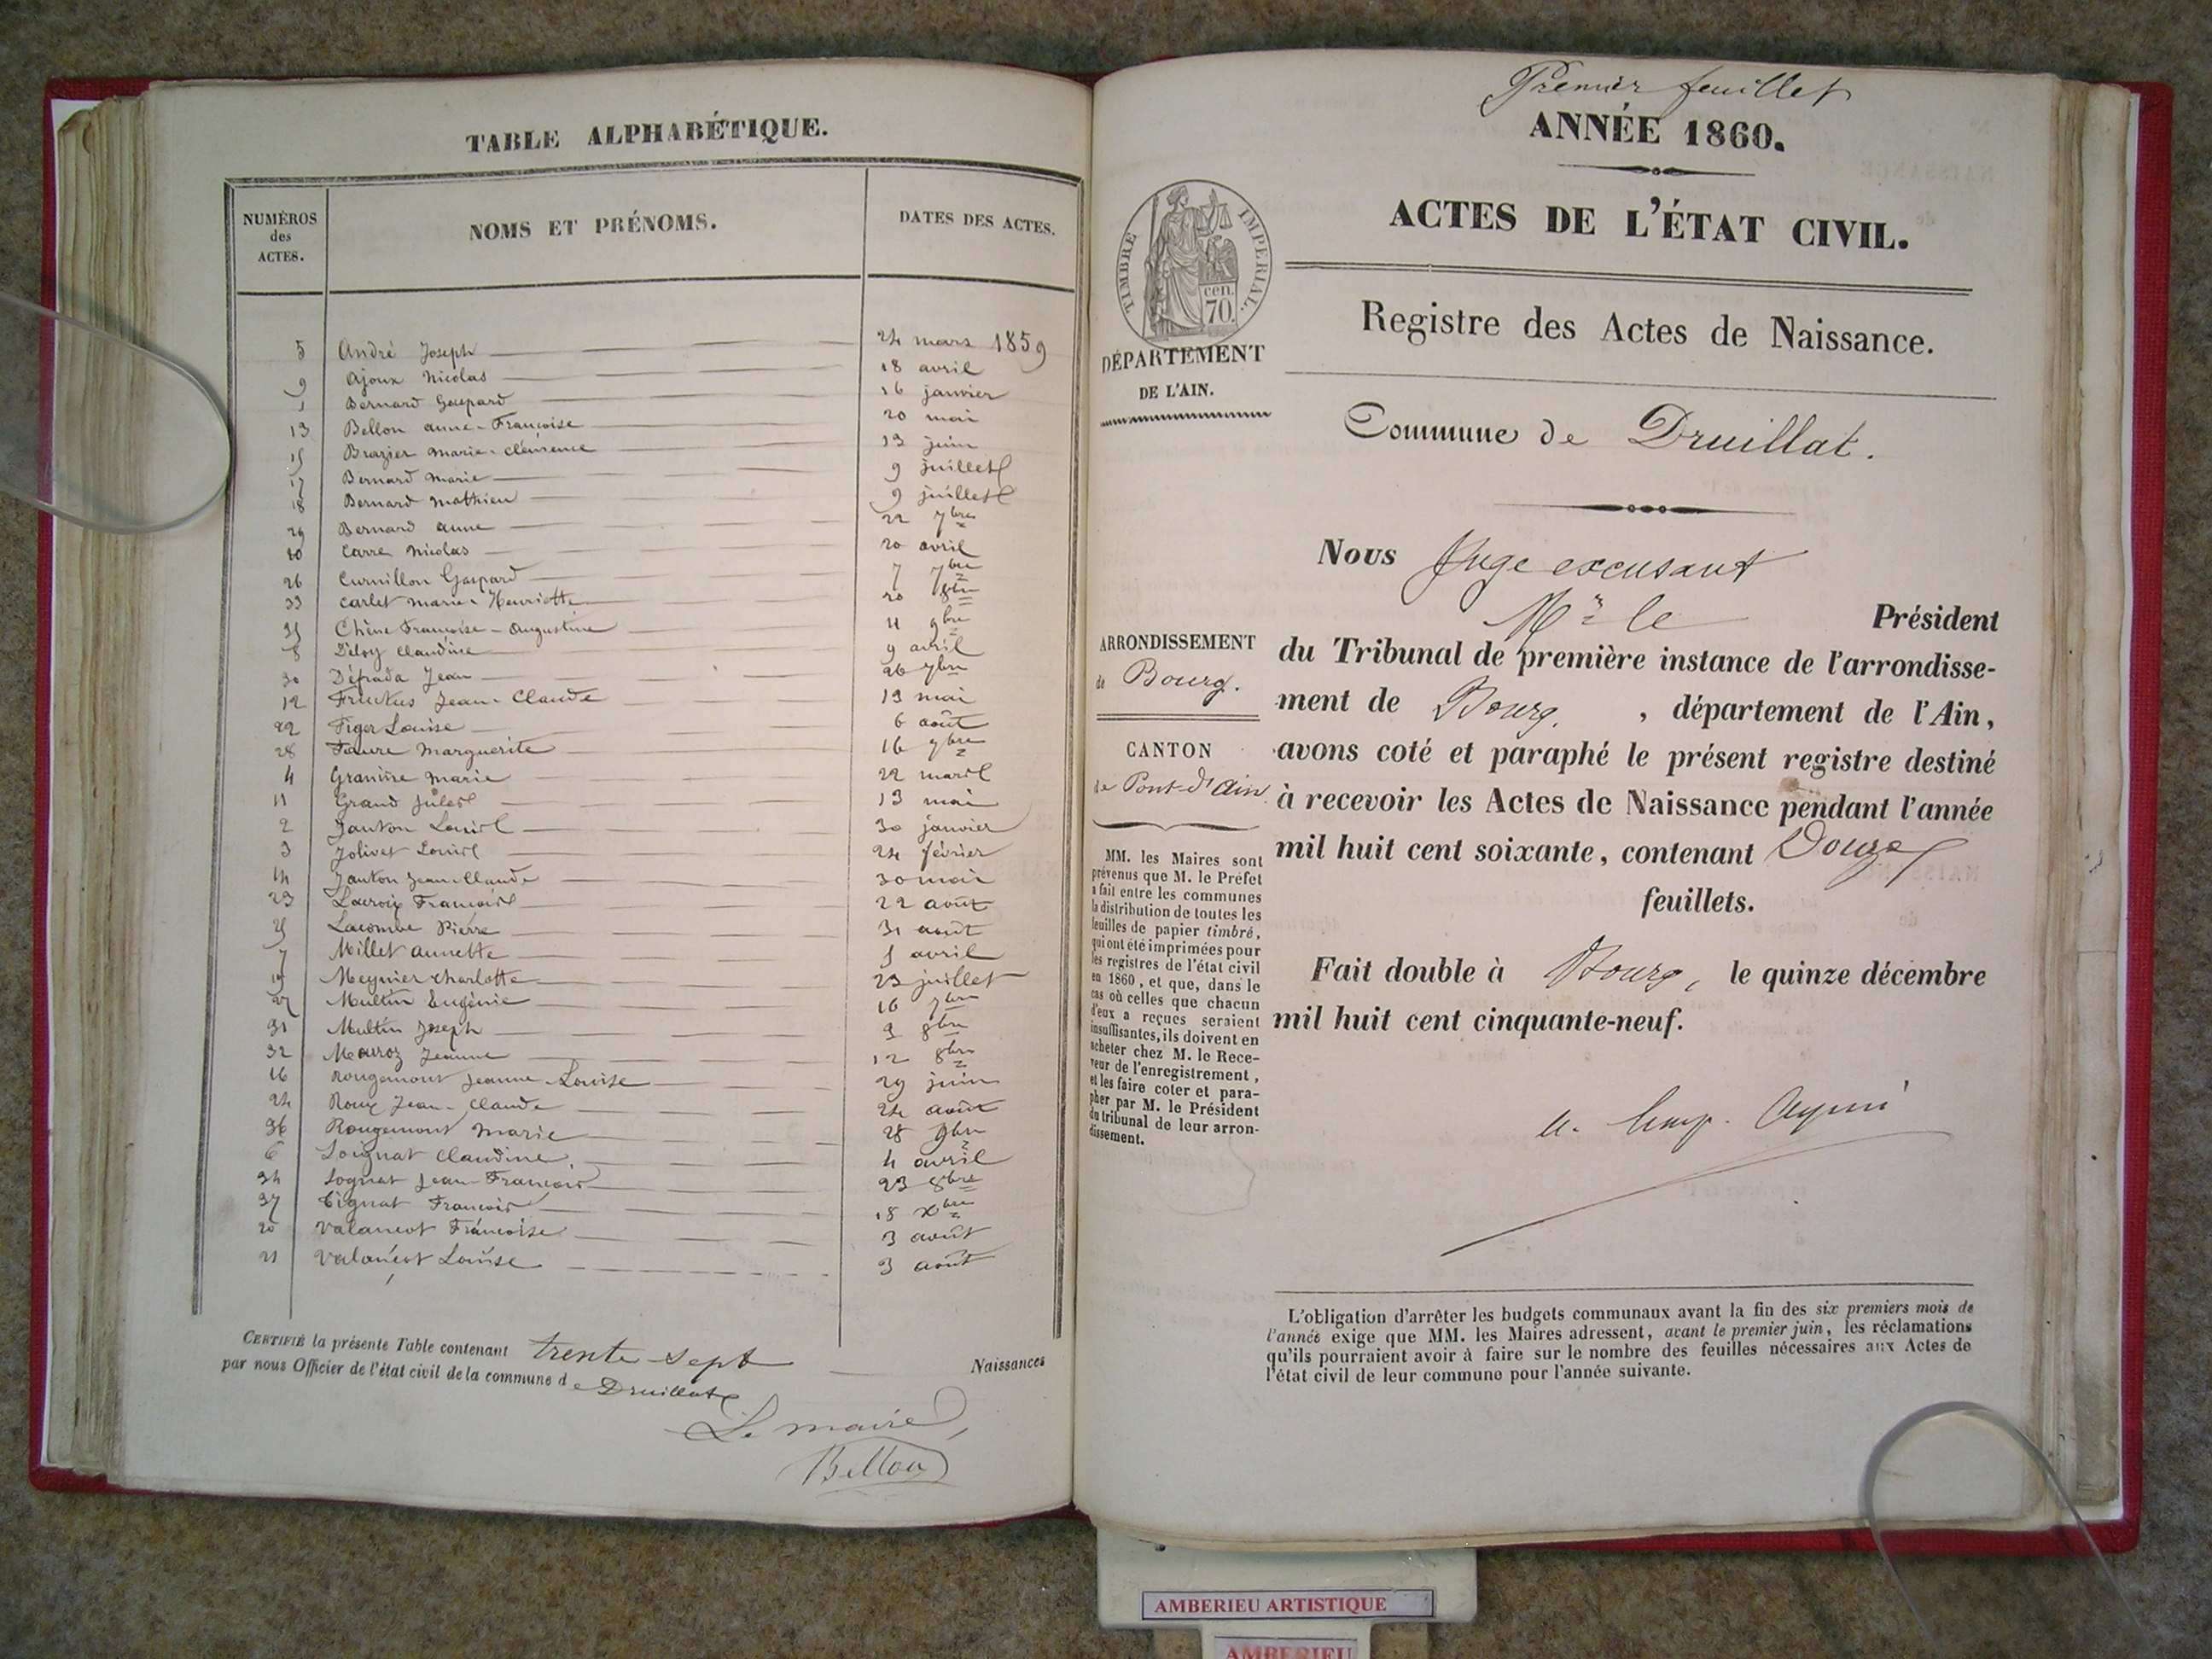 TABLE ALPHABÉTIQUE.
NUMÉROS
des
ACTES.
NOMS ET PRÉNOMS.
DATES DES ACTES.
5 André Joseph 24 mars 1859
9 Ajoux Nicolas 18 avril
1 Bernard Gaspard 16 janvier
13 Bellon anne-Françoise 20 mai
15 Brazier marie-clémence 13 juin
17 Bernard marie 9 juillet
18 Bernard mathieu 9 juillet
29 Bernard anne 22 7bre
10 Carre Nicolas 20 avril
26 Curnillon Gaspard 7 7bre
33 Carlet marie-Henriette 20 8bre
35 Chêne Françoise-Augustine 11 9bre
8 Déloy Claudine 9 avril
30 Défrada Jean 26 7bre
12 Fructus Jean-Claude 19 mai
22 Figer Louise 6 août
28 Faure Marguerite 16 7bre
4 Granière Marie 22 mars
11 Grand Jules 13 mai
2 Janton Louis 30 janvier
3 Jolivet Louis 24 février
14 Janton Jean-Claude 30 mai
23 Lacroix François 22 août
25 Lacombe Pierre 31 août
7 Millet annette 5 avril
19 Meynier charlotte 23 juillet
27 Multin Eugénie 16 7bre
31 Multin Joseph 9 8bre
32 Mauroz Jeanne 12 8bre
16 Rougemont Jeanne-Louise 29 juin
24 Roux Jean-Claude 24 août
36 Rougemont Marie 28 9bre
6 Soignat Claudine 4 avril
34 Sognat Jean-François 23 8bre
37 Tignat François 18 xbre
20 Valancot Françoise 3 août
21 Valancot Louise 3 août
CERTIFIÉ la présente Table contenant trente-sept Naissances
par nous Officier de l'état civil de la commune de Druillat
Le maire,
Bellon
Premier feuillet
ANNÉE 1860.
ACTES DE L'ÉTAT CIVIL.
TIMBRE IMPÉRIAL.
cen.
70.
Registre des Actes de Naissance.
DÉPARTEMENT
DE L'AIN.
Commune de Druillat.
Nous Juge excusant
Mr le Président
du Tribunal de première instance de l'arrondisse-
ment de Bourg, département de l'Ain,
avons coté et paraphé le présent registre destiné
à recevoir les Actes de Naissance pendant l'année
mil huit cent soixante, contenant Douze
feuillets.
Fait double à Bourg, le quinze décembre
mil huit cent cinquante-neuf.
ARRONDISSEMENT
de Bourg.
CANTON
de Pont-d'Ain
MM. les Maires sont
prévenus que M. le Préfet
a fait entre les communes
la distribution de toutes les
feuilles de papier timbré,
qui ont été imprimées pour
les registres de l'état civil
en 1860, et que, dans le
cas où celles que chacun
d'eux a reçues seraient
insuffisantes, ils doivent en
acheter chez M. le Rece-
veur de l'enregistrement,
et les faire coter et para-
pher par M. le Président
du tribunal de leur arron-
dissement.
L'obligation d'arrêter les budgets communaux avant la fin des six premiers mois de
l'année exige que MM. les Maires adressent, avant le premier juin, les réclamations
qu'ils pourraient avoir à faire sur le nombre des feuilles nécessaires aux Actes de
l'état civil de leur commune pour l'année suivante.
AMBERIEU ARTISTIQUE
AMBERIEU